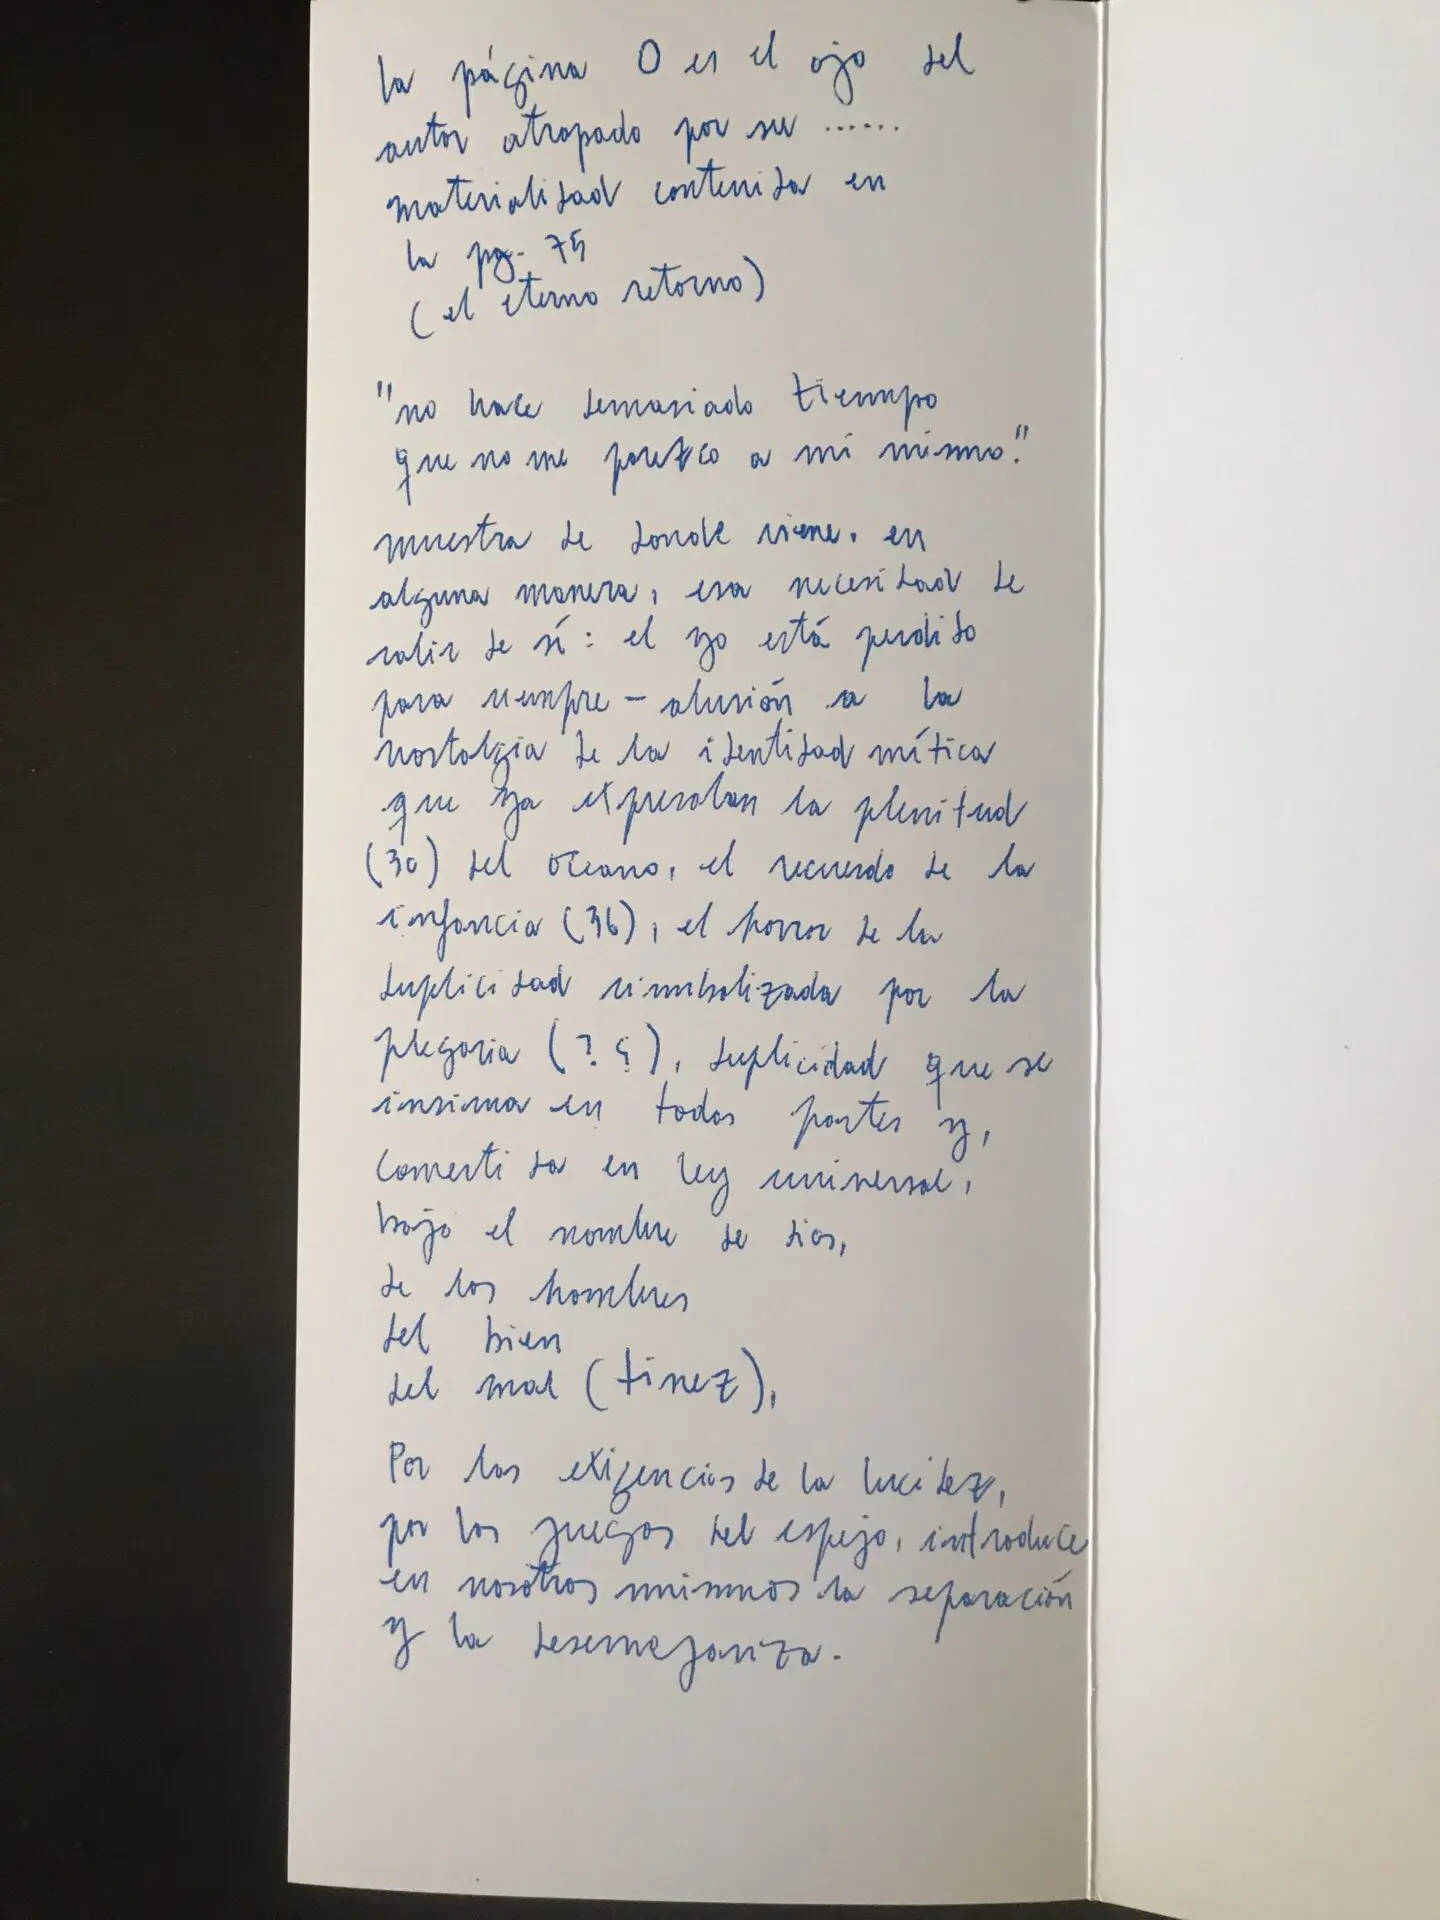 la página 0 es el ojo del
autor atrapado por su ......
materialidad contenida en
la pg. 75
(el eterno retorno)
"no hace demasiado tiempo
que no me parezco a mí mismo."
muestra de donde viene, en
alguna manera, esa necesidad de
salir de sí: el yo está perdido
para siempre – alusión a la
nostalgia de la identidad mítica
que ya expresaban la plenitud
(30) del oceano, el recuerdo de la
infancia (36), el horror de la
duplicidad simbolizada por la
plegaria (? ¿), duplicidad que se
insinua en todas partes y,
convertida en ley universal,
bajo el nombre de dios,
de los hombres
del bien
del mal (tinez),
Por las exigencias de la lucidez,
por los juegos del espejo, introduce
en nosotros mismos la separación
y la desemejanza.